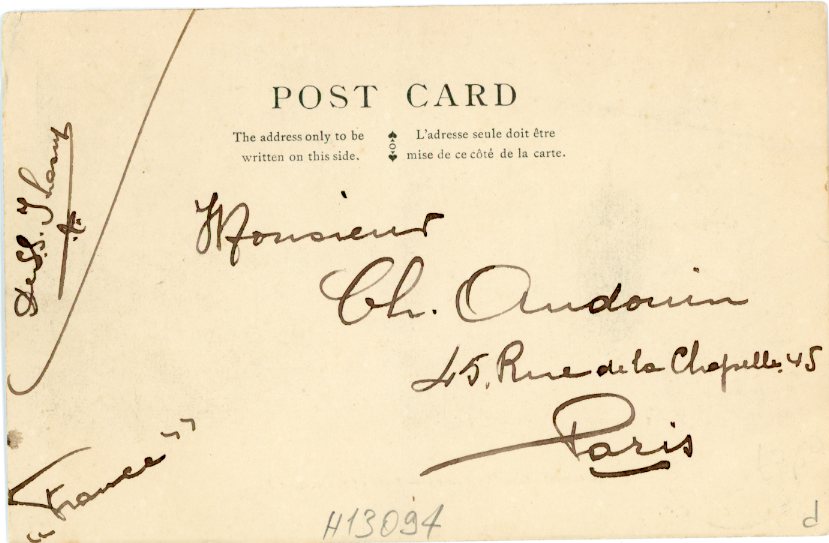 POST CARD
The address only to be
written on this side.
L'adresse seule doit être
mise de ce côté de la carte.
Monsieur
Ch. Audouin
45, Rue de la Chapelle. 45
Paris
"France"
H13094
d